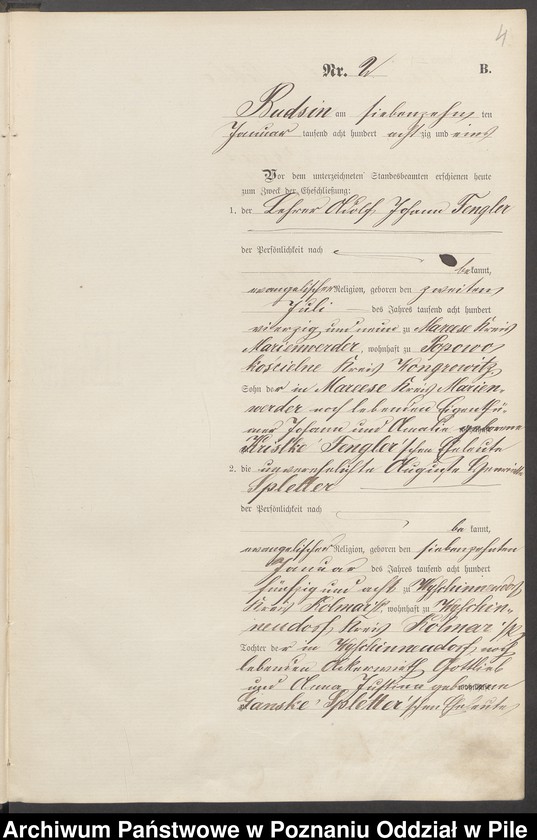 4
Nr. 2 B.
Budsin am siebenzehn ten
Januar tausend acht hundert achtzig und eins
Vor dem unterzeichneten Standesbeamten erschienen heute
zum Zweck der Eheschließung:
1. der Lehrer Adolf Johann Tengler
der Persönlichkeit nach
bekannt,
evangelischer Religion, geboren den zweiten
Juli des Jahres tausend acht hundert
vierzig und neun zu Mareese Kreis
Marienwerder, wohnhaft zu Popowo
koscielne Kreis Wongrowitz,
Sohn der in Mareese Kreis Marien-
werder noch lebenden Eigenthü-
mer Johann und Amalie geborene
Tengler'schen Eheleute
2. die unverehelichte Auguste
Spletter
der Persönlichkeit nach
bekannt,
evangelischer Religion, geboren den siebenzehnten
Januar des Jahres tausend acht hundert
fünfzig und acht zu Wyschinneudorf
Kreis Kolmar, wohnhaft zu Wyschin-
neudorf Kreis Kolmar
Tochter der in Wyschinneudorf noch
lebenden Ackerwirth Gottlieb
und Anna Justina geborenen
Janske Spletter'schen Eheleute
Archiwum Państwowe w Poznaniu Oddział w Pile